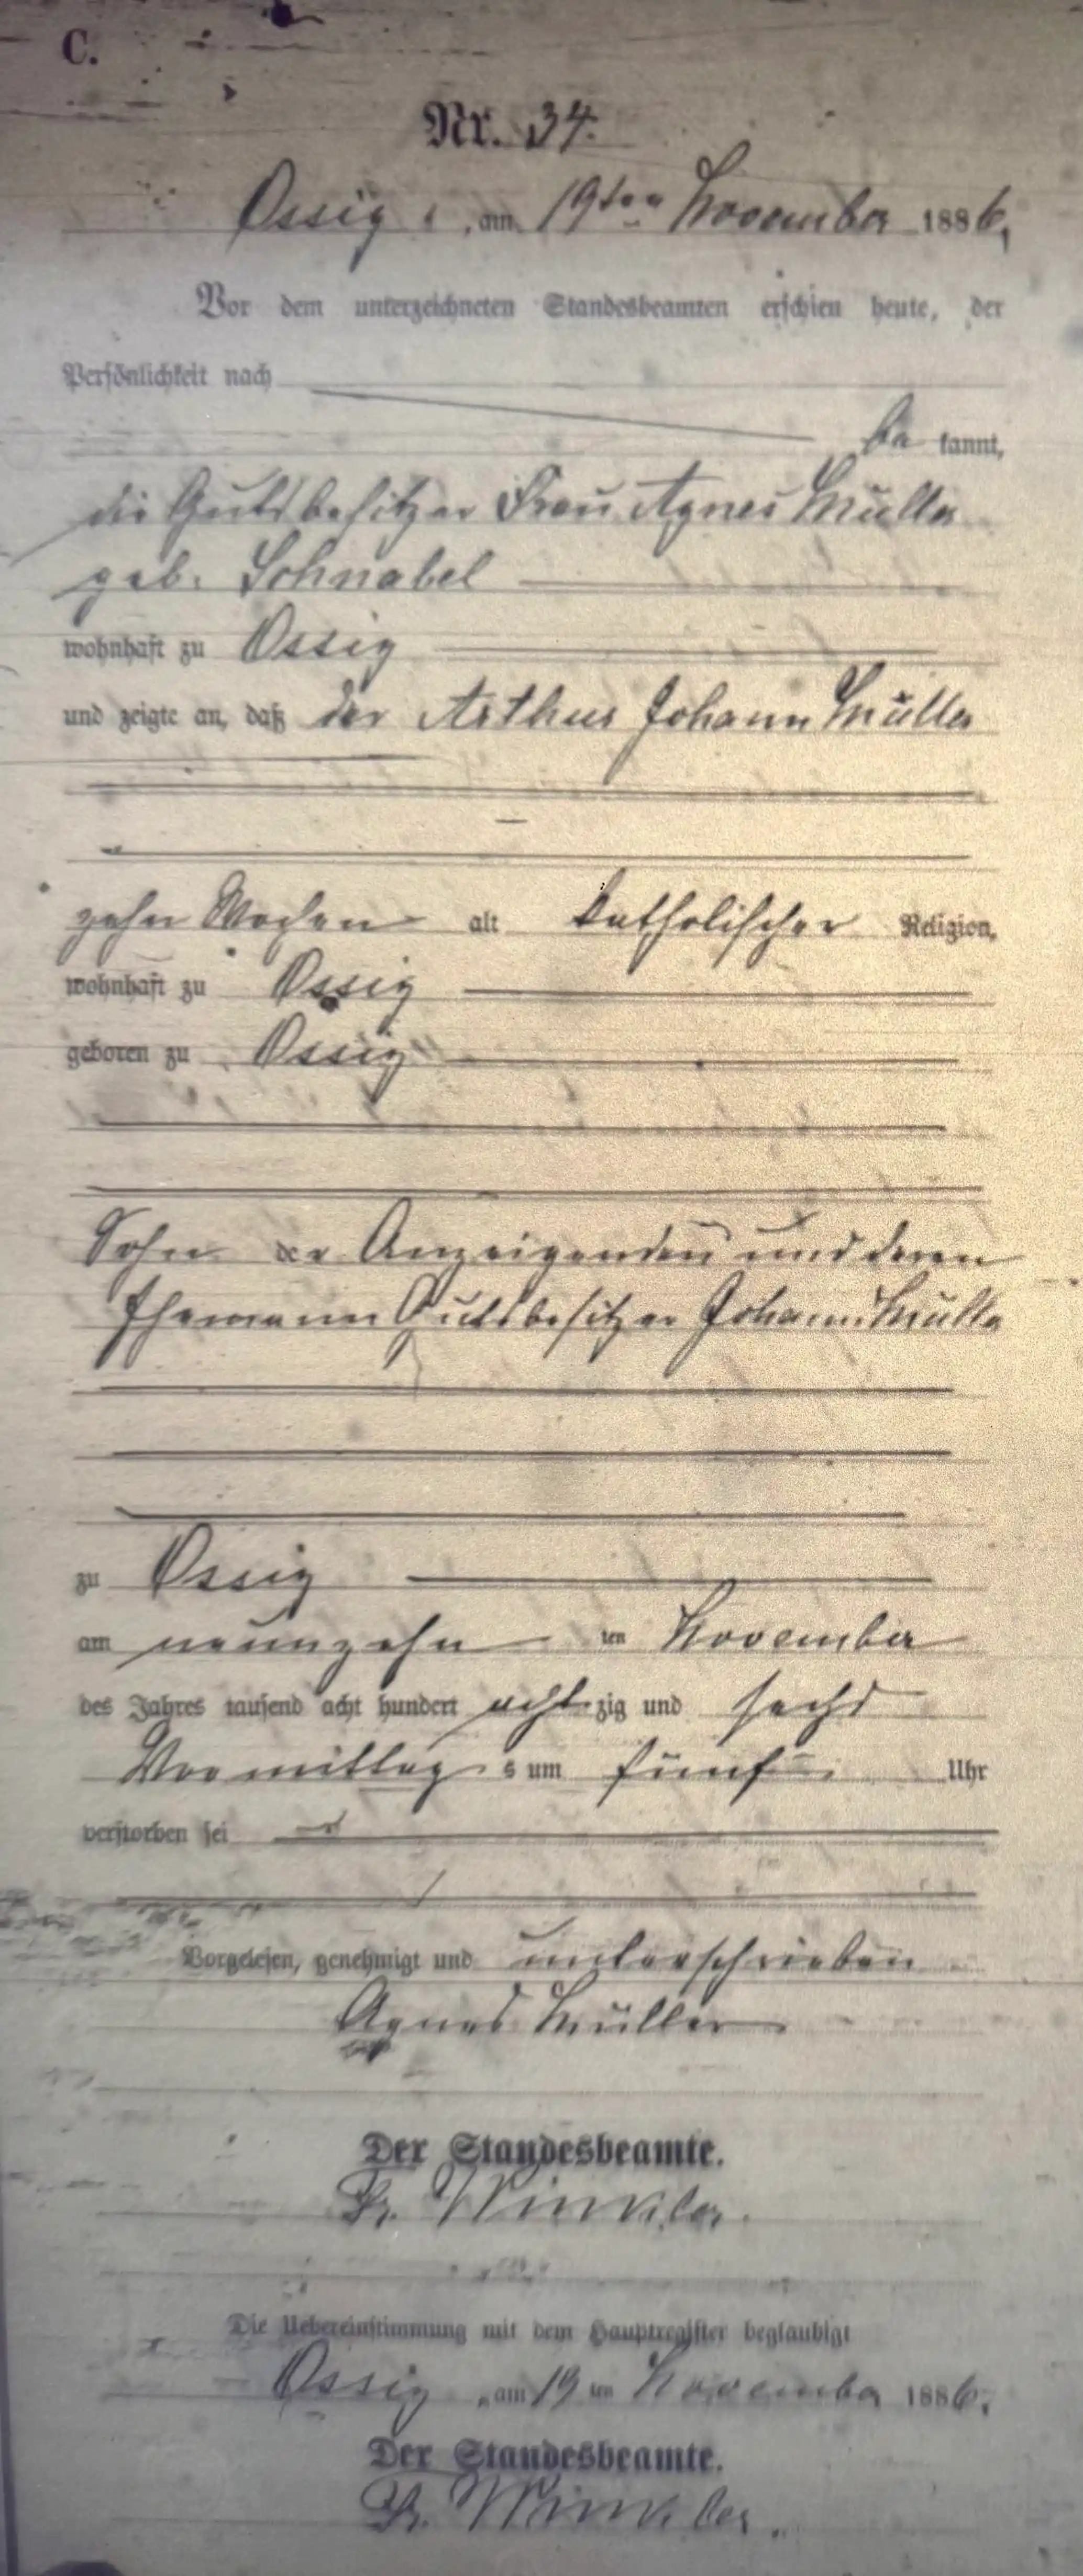 C.
Nr. 34.
Ossig, am 19ten November 1886,
Vor dem unterzeichneten Standesbeamten erschien heute, der
Persönlichkeit nach
be kannt,
die Gutsbesitzer Frau Agnes Müller
geb. Schnabel
wohnhaft zu Ossig
und zeigte an, daß der Arthur Johann Müller
zehn Wochen alt katholischer Religion,
wohnhaft zu Ossig
geboren zu Ossig
Sohn der Anzeigenden und deren
Ehemann Gutsbesitzer Johann Müller
zu Ossig
am neunzehn ten November
des Jahres tausend acht hundert acht zig und sechs
Vormittag s um fünf Uhr
verstorben sei
Vorgelesen, genehmigt und unterschrieben
Agnes Müller
Der Standesbeamte.
Fr. Winkler.
Die Uebereinstimmung mit dem Hauptregister beglaubigt
Ossig, am 19 ten November 1886.
Der Standesbeamte.
Fr. Winkler.